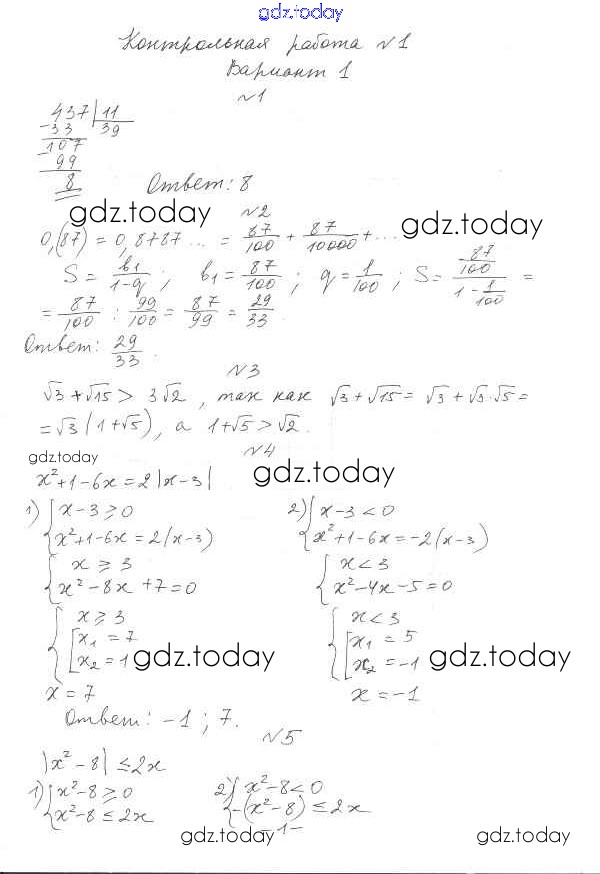 gdz.today
Контрольная работа №1
Вариант 1
№1
437 | 11
-33 | 39
107
-99
8
Ответ: 8
gdz.today
№2
gdz.today
0,(87) = 0,8787... = 87/100 + 87/10000 + ...
S = b₁/(1-q) ; b₁ = 87/100 ; q = 1/100 ; S = (87/100)/(1 - 1/100) =
= 87/100 : 99/100 = 87/99 = 29/33.
Ответ: 29/33.
№3
√3 + √15 > 3√2, так как √3 + √15 = √3 + √3·√5 =
= √3 (1+√5), а 1+√5 > √2.
№4
gdz.today
gdz.today
x²+1-6x = 2|x-3|
1) { x-3 ≥ 0
{ x²+1-6x = 2(x-3)
{ x ≥ 3
{ x²-8x+7=0
{ x ≥ 3
[ x₁ = 7
[ x₂ = 1
x = 7
2) { x-3 < 0
{ x²+1-6x = -2(x-3)
{ x < 3
{ x²-4x-5=0
{ x < 3
[ x₁ = 5
[ x₂ = -1
x = -1
gdz.today
gdz.today
Ответ: -1 ; 7.
№5
|x²-8| ≤ 2x
1) { x²-8 ≥ 0
{ x²-8 ≤ 2x
2) { x²-8 < 0
{ -(x²-8) ≤ 2x
-1-
gdz.today
gdz.today